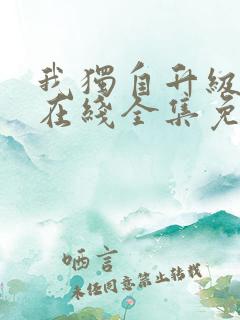 我獨自升級
在綫全集免
哂言
未任同意禁止轉載